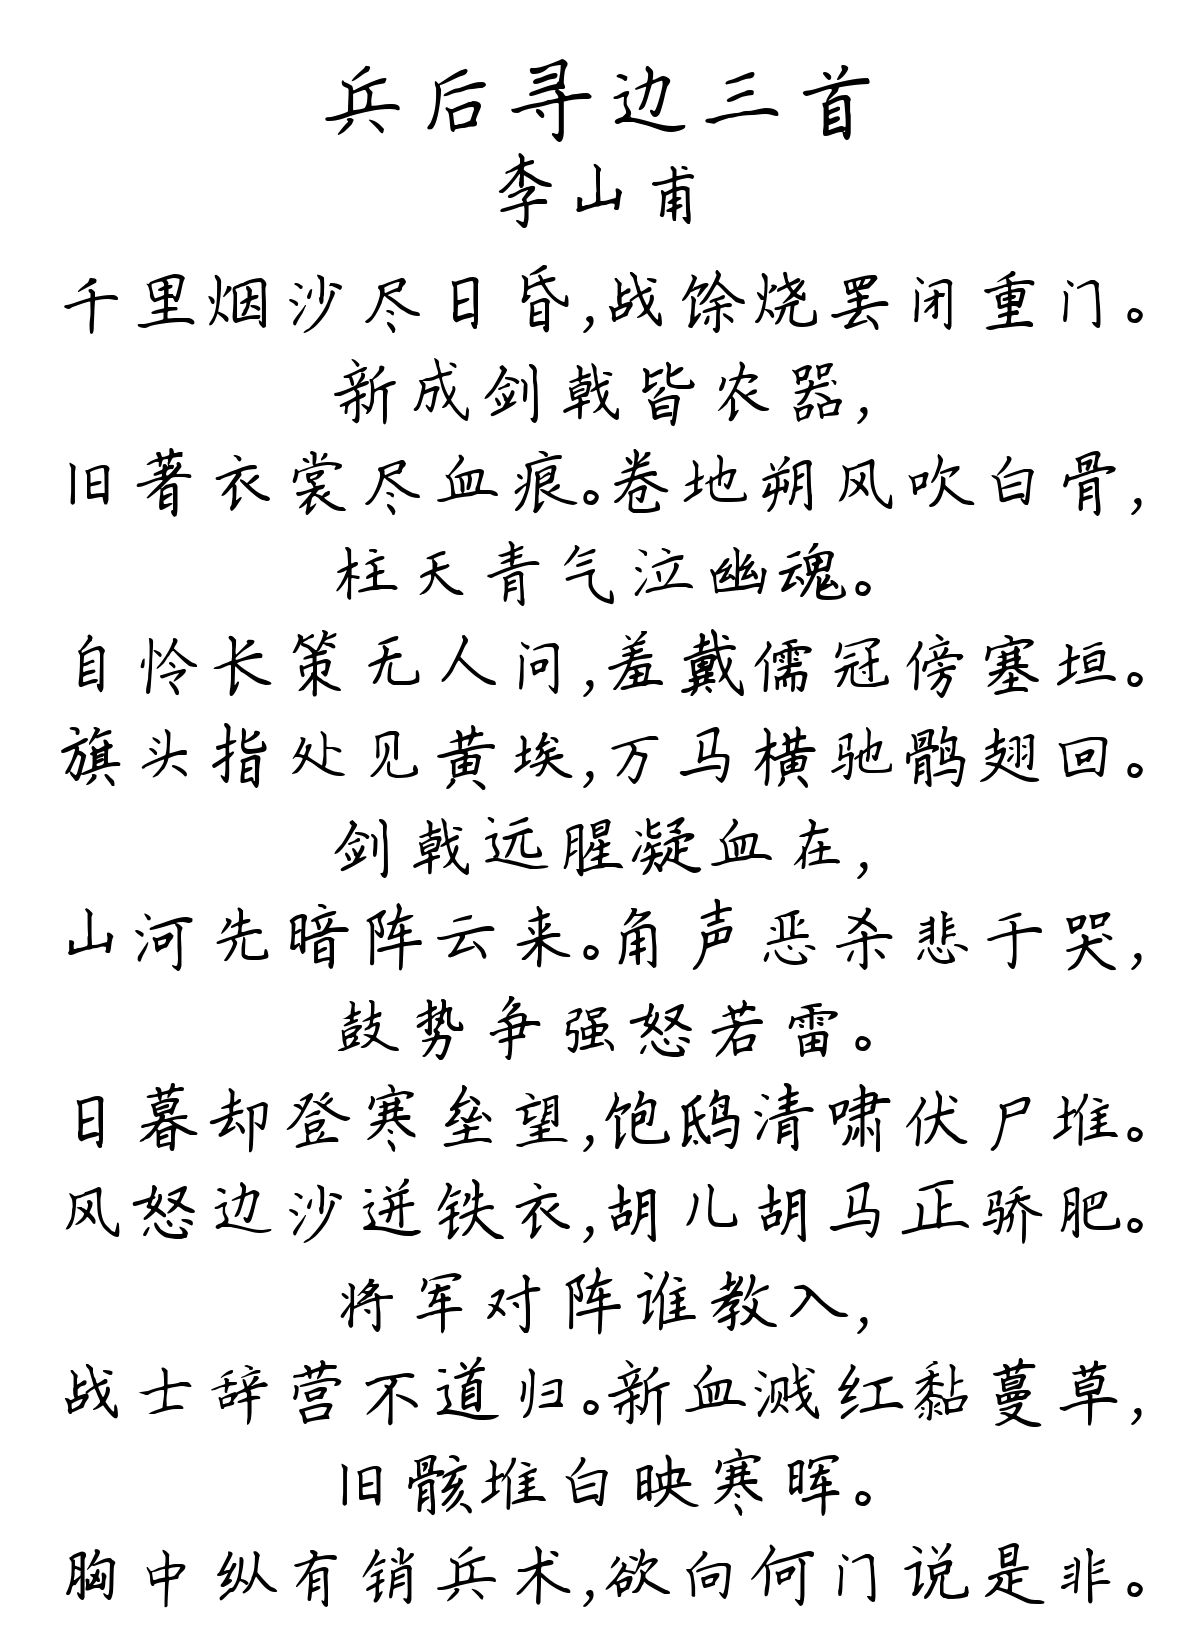 兵后寻边三首
李山甫
千里烟沙尽日昏,战馀烧罢闭重门。
新成剑戟皆农器,
旧著衣裳尽血痕。卷地朔风吹白骨,
柱天青气泣幽魂。
自怜长策无人问,羞戴儒冠傍塞垣。
旗头指处见黄埃,万马横驰鹘翅回。
剑戟远腥凝血在,
山河先暗阵云来。角声恶杀悲于哭,
鼓势争强怒若雷。
日暮却登寒垒望,饱鸱清啸伏尸堆。
风怒边沙迸铁衣,胡儿胡马正骄肥。
将军对阵谁教入,
战士辞营不道归。新血溅红黏蔓草,
旧骸堆白映寒晖。
胸中纵有销兵术,欲向何门说是非。